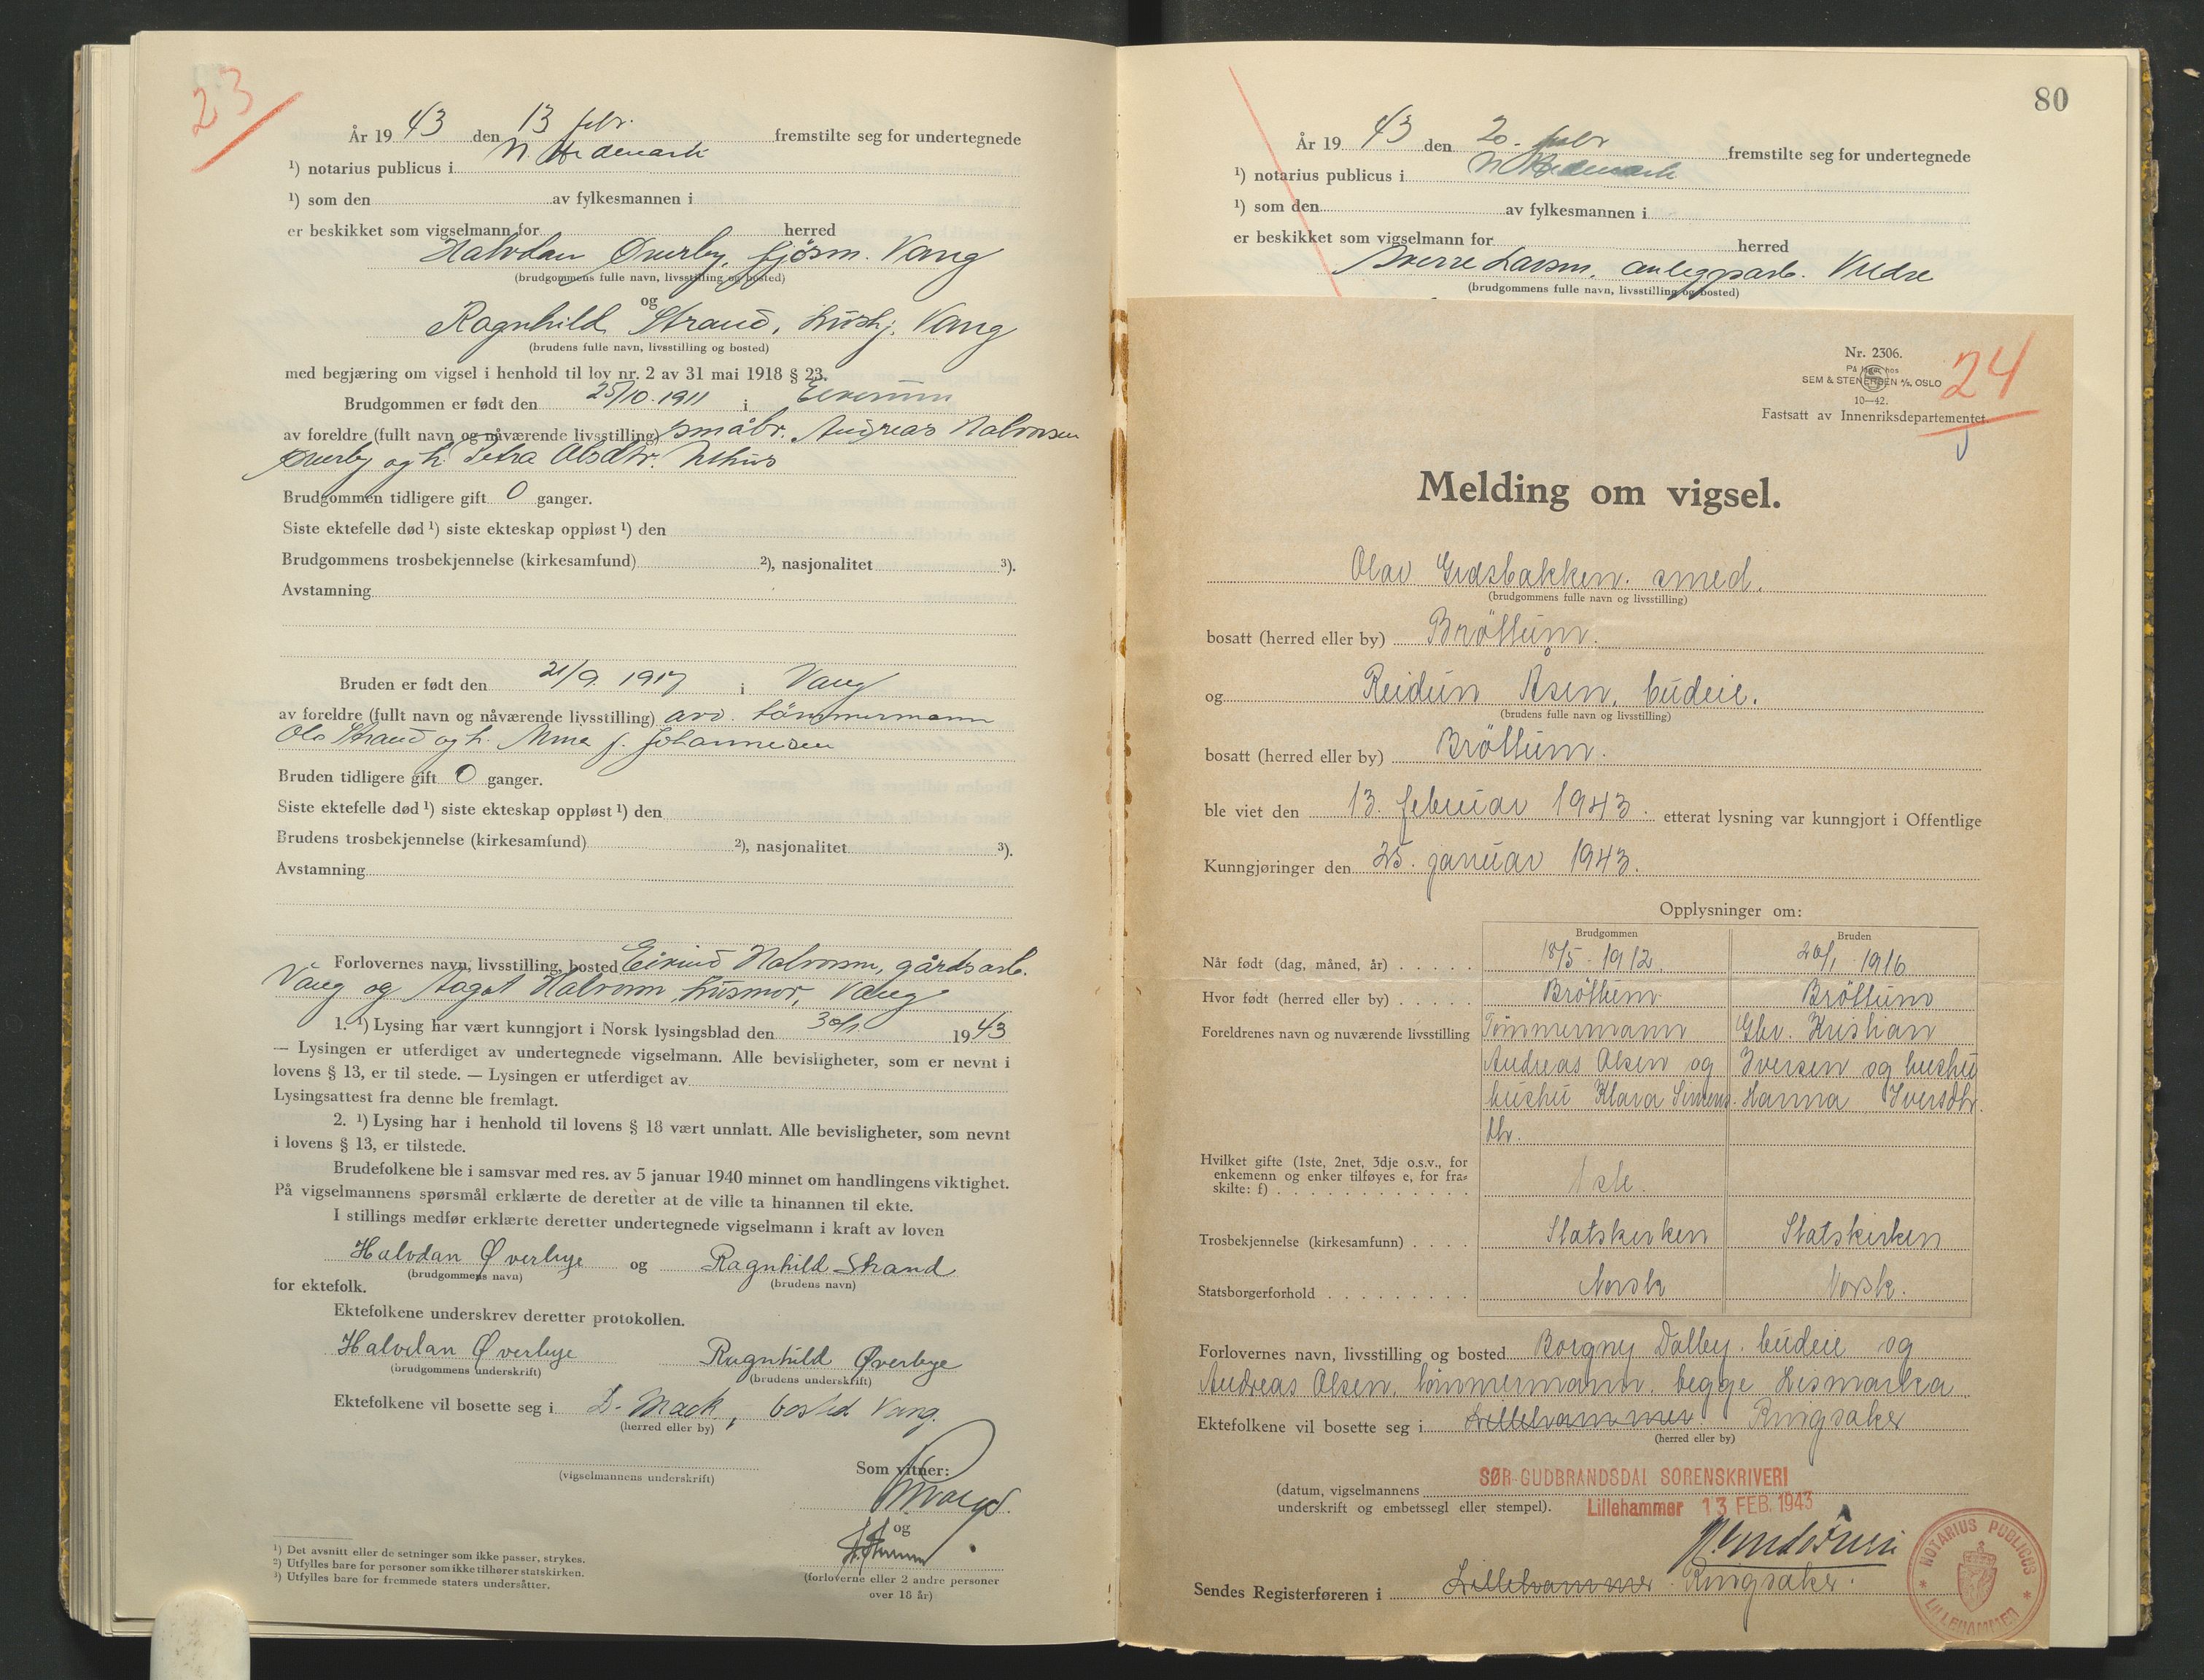 23
År 19 43 den 13 febr. fremstilte seg for undertegnede
¹) notarius publicus i N. Hedemark
¹) som den av fylkesmannen i
er beskikket som vigselmann for herred
Halvdan Øverby, fjøsm. Vang
(brudgommens fulle navn, livsstilling og bosted)
og
Ragnhild Strand, hushj. Vang
(brudens fulle navn, livsstilling og bosted)
med begjæring om vigsel i henhold til lov nr. 2 av 31 mai 1918 § 23.
Brudgommen er født den 25/10. 1911 i Elverum
av foreldre (fullt navn og nåværende livsstilling) småbr. Andreas Halvorsen
Øverby og h. Petra Olsdtr.
Brudgommen tidligere gift 0 ganger.
Siste ektefelle død ¹) siste ekteskap oppløst ¹) den
Brudgommens trosbekjennelse (kirkesamfund) ²), nasjonalitet ³).
Avstamning
Bruden er født den 21/9. 1917 i Vang
av foreldre (fullt navn og nåværende livsstilling) avd. tømmermann
Ole Strand og h. f. Johannesen
Bruden tidligere gift 0 ganger.
Siste ektefelle død ¹) siste ekteskap oppløst ¹) den
Brudens trosbekjennelse (kirkesamfund) ²), nasjonalitet ³).
Avstamning
Forlovernes navn, livsstilling, bosted Eivind Halvorsen, gårdsarb.
Vang og Aagot Halvorsen, husmor, Vang
1. ¹) Lysing har vært kunngjort i Norsk lysingsblad den 30/1. 19 43
— Lysingen er utferdiget av undertegnede vigselmann. Alle bevisligheter, som er nevnt i
lovens § 13, er til stede. — Lysingen er utferdiget av
Lysingsattest fra denne ble fremlagt.
2. ¹) Lysing har i henhold til lovens § 18 vært unnlatt. Alle bevisligheter, som nevnt
i lovens § 13, er tilstede.
Brudefolkene ble i samsvar med res. av 5 januar 1940 minnet om handlingens viktighet.
På vigselmannens spørsmål erklærte de deretter at de ville ta hinannen til ekte.
I stillings medfør erklærte deretter undertegnede vigselmann i kraft av loven
Halvdan Øverbye og Ragnhild Strand
(brudgommens navn) (brudens navn)
for ektefolk.
Ektefolkene underskrev deretter protokollen.
Halvdan Øverbye Ragnhild Øverbye
(brudgommens underskrift) (brudens underskrift)
Ektefolkene vil bosette seg i D. Mack, bosted Vang.
(herred eller by)
Som vitner:
(vigselmannens underskrift)
og
(forloverne eller 2 andre personer
over 18 år)
¹) Det avsnitt eller de setninger som ikke passer, strykes.
²) Utfylles bare for personer som ikke tilhører statskirken.
³) Utfylles bare for fremmede staters undersåtter.
80
År 19 43 den 20. febr fremstilte seg for undertegnede
¹) notarius publicus i N Hedemark
¹) som den av fylkesmannen i
er beskikket som vigselmann for herred
Sverre Larsen, anleggsarb. Veldre
(brudgommens fulle navn, livsstilling og bosted)
Nr. 2306.
På lager hos
SEM & STENERSEN A/S, OSLO
10—42.
Fastsatt av Innenriksdepartementet.
24
Melding om vigsel.
Olav Gudsbakken. smed.
(brudgommens fulle navn og livsstilling)
bosatt (herred eller by) Brøttum.
og Reidun Åsen, budeie.
(brudens fulle navn og livsstilling)
bosatt (herred eller by) Brøttum.
ble viet den 13. februar 1943. etterat lysning var kunngjort i Offentlige
Kunngjøringer den 25. januar 1943.
Opplysninger om:
Brudgommen Bruden
Når født (dag, måned, år) 18/5 - 1912. 26/1 1916
Hvor født (herred eller by) Brøttum Brøttum
Foreldrenes navn og nuværende livsstilling Tømmermann Gbr. Kristian
Andreas Olsen og Iversen og hustru
hustru Klara Simens- Hanna Iversdtr.
dtr.
Hvilket gifte (1ste, 2net, 3dje o.s.v., for
enkemenn og enker tilføyes e, for fra-
skilte: f) 1ste.
Trosbekjennelse (kirkesamfunn) Statskirken Statskirken
Statsborgerforhold Norsk Norsk.
Forlovernes navn, livsstilling og bosted Borgny Dalby. budeie og
Andreas Olsen, tømmermann. begge Lismarka
Ektefolkene vil bosette seg i Lillehammer. Ringsaker
(herred eller by)
SØR-GUDBRANDSDAL SORENSKRIVERI
(datum, vigselmannens
underskrift og embetssegl eller stempel). Lillehammer 13 FEB. 1943
Sendes Registerføreren i Lillehammer. Ringsaker.
* NOTARIUS PUBLICUS * LILLEHAMMER